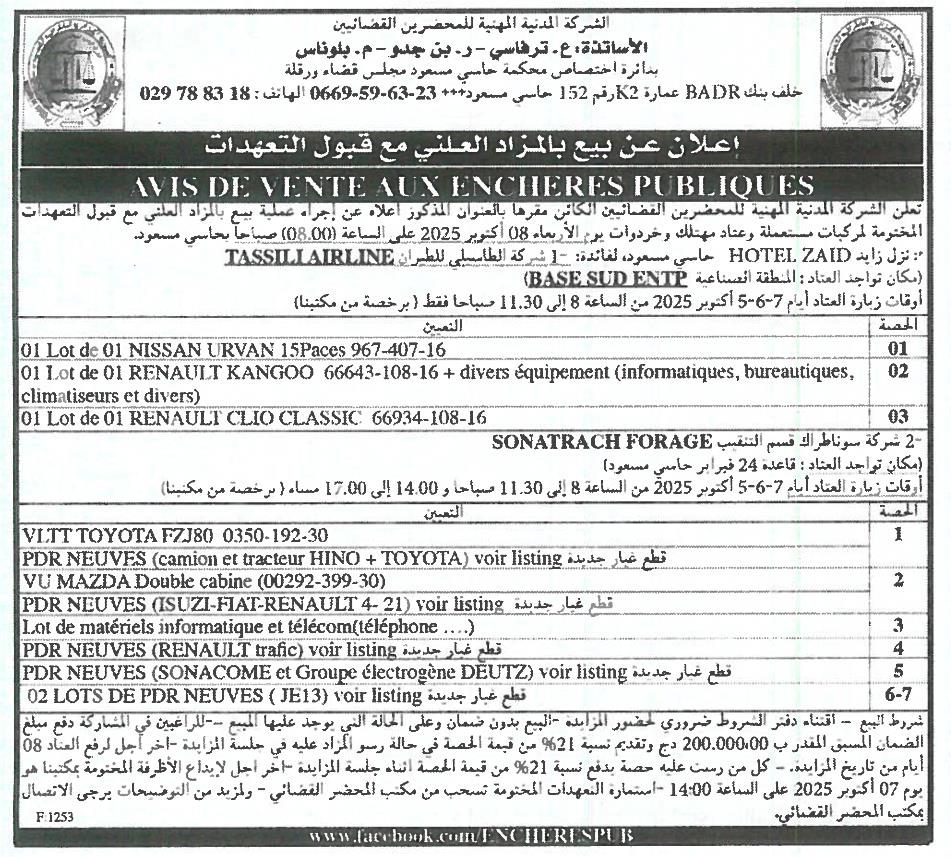 الشركة المدنية المهنية للمحضرين القضائيين
الأساتذة: ع. ترفاسي- ر. بن جدو- م. بلوناس
بدائرة اختصاص محكمة حاسي مسعود مجلس قضاء ورقلة
خلف بنك BADR عمارة K2 رقم 152 حاسي مسعود*** 0669-59-63-23 الهاتف : 029 78 83 18
إعلان عن بيع بالمزاد العلني مع قبول التعهدات
AVIS DE VENTE AUX ENCHERES PUBLIQUES
تعلن الشركة المدنية المهنية للمحضرين القضائيين الكائن مقرها بالعنوان المذكور اعلاه عن إجراء عملية بيع بالمزاد العلني مع قبول التعهدات
المختومة لمركبات مستعملة وعتاد مهتلك وخردوات يوم الأربعاء 08 أكتوبر 2025 على الساعة (08.00) صباحا بحاسي مسعود.
نزل زايد HOTEL ZAID حاسي مسعود، لفائدة: -1 شركة الطاسيلي للطيران TASSILI AIRLINE
(مكان تواجد العتاد : المنطقة الصناعية BASE SUD ENTP)
أوقات زيارة العتاد أيام 7-6-5 أكتوبر 2025 من الساعة 8 إلى 11.30 صباحا فقط ( برخصة من مكتبنا)
الحصة التعيين
01 01 Lot de 01 NISSAN URVAN 15Paces 967-407-16
02 01 Lot de 01 RENAULT KANGOO 66643-108-16 + divers équipement (informatiques, bureautiques,
climatiseurs et divers)
03 01 Lot de 01 RENAULT CLIO CLASSIC 66934-108-16
-2 شركة سوناطراك قسم التنقيب SONATRACH FORAGE
(مكان تواجد العتاد : قاعدة 24 فبراير حاسي مسعود)
أوقات زيارة العتاد أيام 7-6-5 أكتوبر 2025 من الساعة 8 إلى 11.30 صباحا و 14.00 إلى 17.00 مساء ( برخصة من مكتبنا)
الحصة التعيين
1 VLTT TOYOTA FZJ80 0350-192-30
PDR NEUVES (camion et tracteur HINO + TOYOTA) voir listing قطع غيار جديدة
2 VU MAZDA Double cabine (00292-399-30)
PDR NEUVES (ISUZI-FIAT-RENAULT 4- 21) voir listing قطع غيار جديدة
3 Lot de matériels informatique et télécom(téléphone ….)
4 PDR NEUVES (RENAULT trafic) voir listing قطع غيار جديدة
5 PDR NEUVES (SONACOME et Groupe électrogène DEUTZ) voir listing قطع غيار جديدة
6-7 02 LOTS DE PDR NEUVES ( JE13) voir listing قطع غيار جديدة
شروط البيع – اقتناء دفتر الشروط ضروري لحضور المزايدة -البيع بدون ضمان وعلى الحالة التي يوجد عليها المبيع –-للراغبين في المشاركة دفع مبلغ
الضمان المسبق المقدر ب 200.000،00 دج وتقديم نسبة 21% من قيمة الحصة في حالة رسو المزاد عليه في جلسة المزايدة -اخر أجل لرفع العتاد 08
أيام من تاريخ المزايدة. – كل من رست عليه حصة يدفع نسبة 21% من قيمة الحصة اثناء جلسة المزايدة -اخر اجل لإيداع الأظرفة المختومة بمكتبنا هو
يوم 07 أكتوبر 2025 على الساعة 14:00 -استمارة التعهدات المختومة تسحب من مكتب المحضر القضائي - ولمزيد من التوضيحات يرجى الاتصال
بمكتب المحضر القضائي.
F.1253
www.facebook.com/ENCHERESPUB